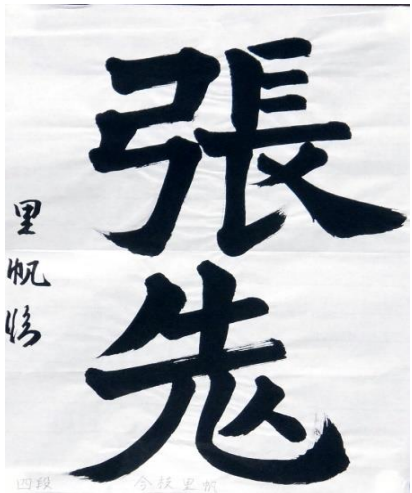 張先
里帆臨
四段 今枝里帆